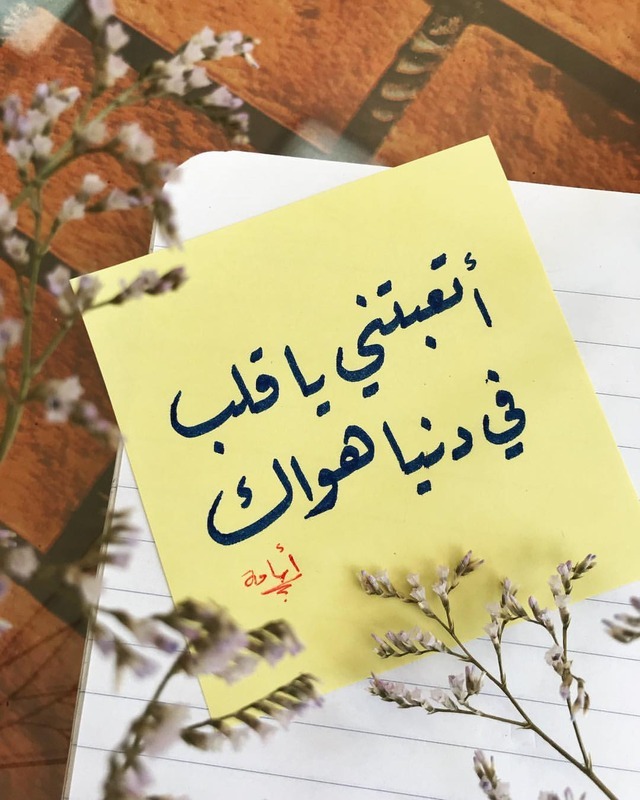 أتعبتني يا قلب
في دنيا هواك